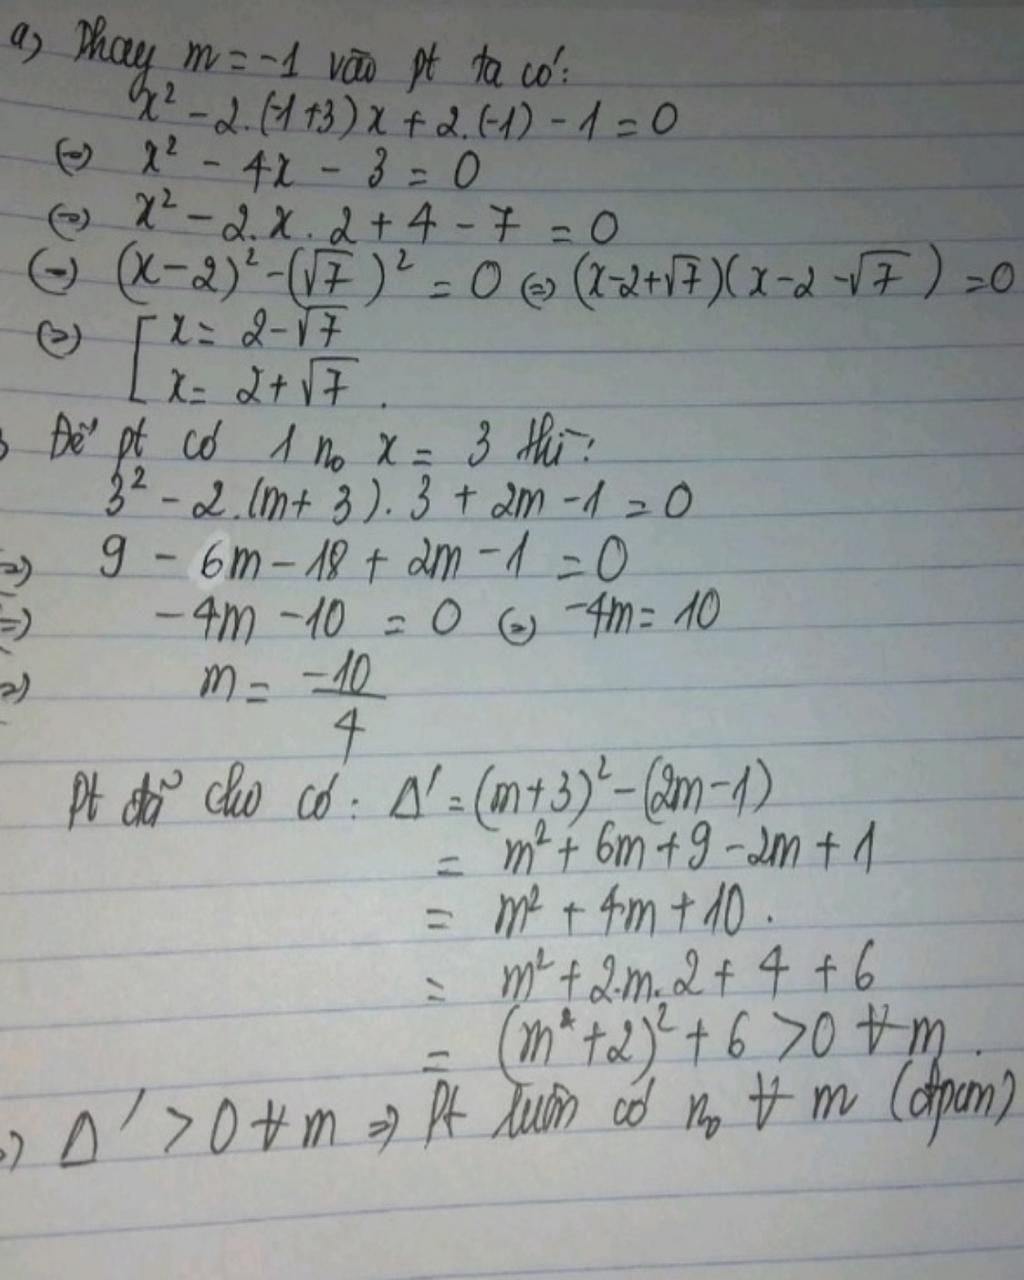 a, Thay m = -1 vào pt ta có:
x² - 2.(-1+3)x + 2.(-1) - 1 = 0
(=) x² - 4x - 3 = 0
(=) x² - 2.x.2 + 4 - 7 = 0
(=) (x-2)² - (√7)² = 0 (=) (x-2+√7)(x-2-√7) = 0
(=) [ x = 2-√7
x = 2+√7.
Để pt có 1 no x = 3 thì:
3² - 2.(m+3).3 + 2m - 1 = 0
=) 9 - 6m - 18 + 2m - 1 = 0
=) -4m - 10 = 0 (=) -4m = 10
=) m = -10/4
Pt đã cho có: Δ' = (m+3)² - (2m-1)
= m² + 6m + 9 - 2m + 1
= m² + 4m + 10.
= m² + 2.m.2 + 4 + 6
= (m+2)² + 6 > 0 ∀m.
=) Δ' > 0 ∀m => Pt luôn có no ∀m (đpcm)